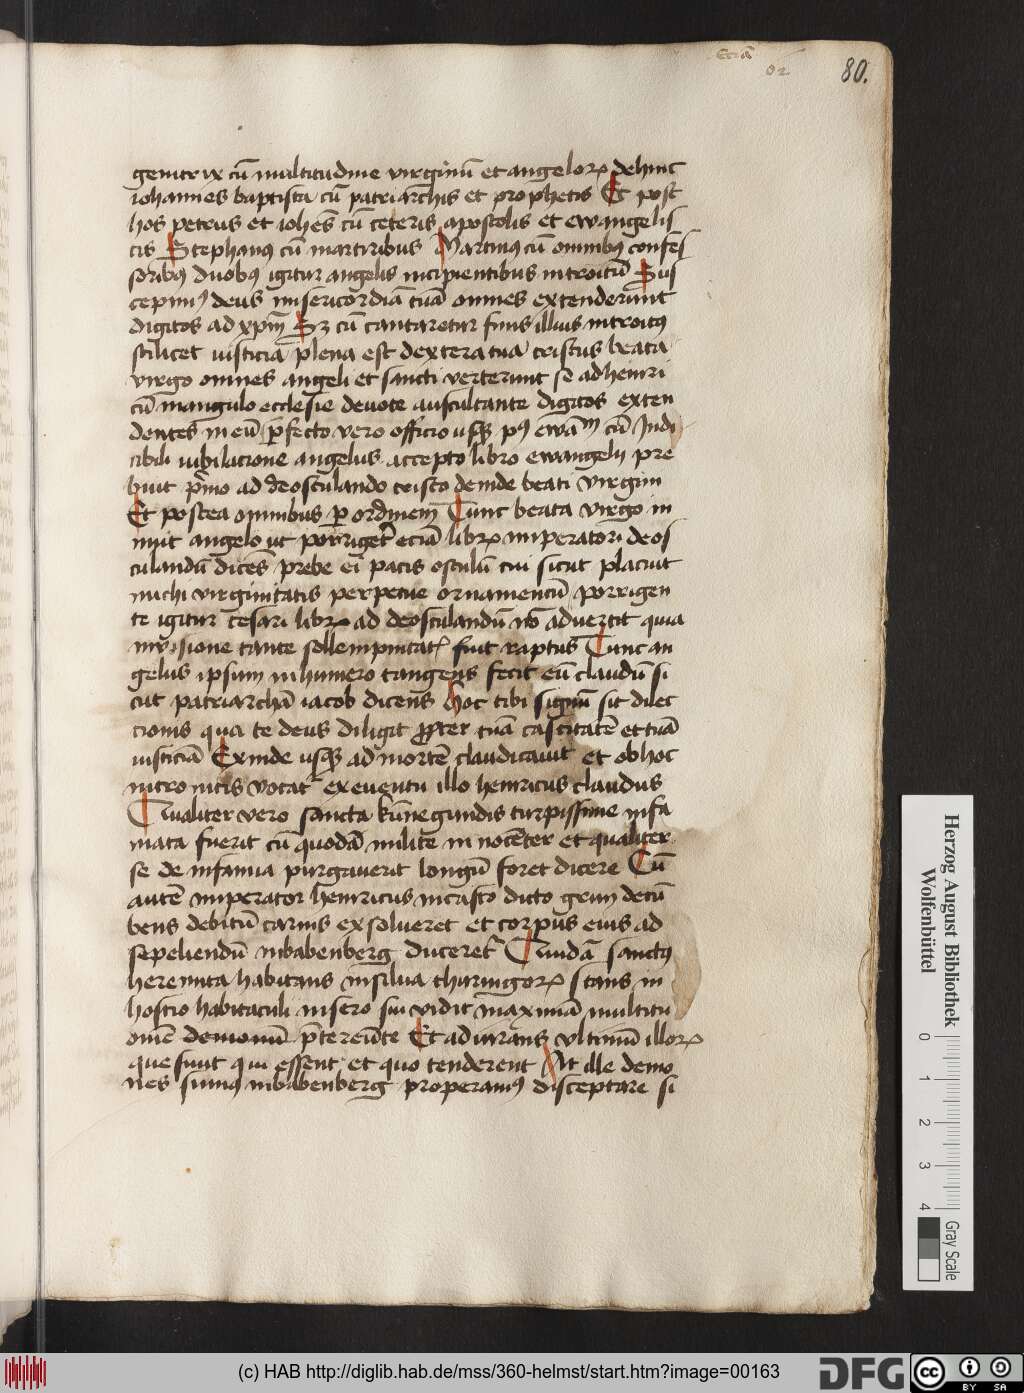 80.
genitrix cū multitudine virginū et angeloꝝ dehinc
iohannes baptista cū patriarchis et prophetis Et post
hos petrus et iohēs cū ceteris apostolis et ewangelis
tis Stephanꝰ cū martiribus Martinꝰ cū omnibꝫ confes
soribꝫ duobꝫ igitur angelis incipientibus introitū Sus
cepimꝰ deus misericordiā tuā omnes extenderunt
digitos ad xpm̄ Sꝫ cū cantaretur finis illius introitꝰ
scilicet iusticia plena est dextera tua cristus beata
virgo omnes angeli et sancti verterunt se ad henri
cū in angulo ecclesie devote auscultante digitos exten
dentes in eū ꝑfecto vero officio usqꝫ pꝰ ewām cū Indi
cibili iubilacione angelus accepto libro ewangelij pre
buit p̄mo ad deosculando cristo deinde beati virgini
Et postea omnibus ꝑ ordinem Tunc beata virgo in
nuit angelo ut porriget͛ eciā libꝝ imperatori deos
culandū dicēs prebe ei pacis osculū cui sicut placuit
michi virginitatis perpetue ornamentū porrigen
te igitur cesari libꝝ ad deosculandū nō advertit quia
in visione tante sollempnitatꝭ fuit raptus Tunc an
gelus ipsum in humero tangens fecit eū claudū si
cut patriarchā iacob dicens Hoc tibi signū sit dilec
cionis qua te deus diligit ꝓpter tuā castitatē et tuā
iusticiā Exinde usqꝫ ad mortē claudicauit et ob hoc
intro nitis vocatr̄ ex euentu illo henricus claudus
Qualiter vero sancta kūnegundis turpissime infa
mata fuerit cū quodā milite in nocēter et qualiter
se de infamia purgauerit longū foret dicere Cū
autē imperator henricus in casto dicto grun decū
bens debitū carnis exsolueret et corpus eius ad
sepeliendū in babenberg duceret͛ Quidā sanctꝰ
heremita habitans in silua thuringoꝝ stans in
hostio habitaculi in sero sui vidit maximā multitu
dinē demonū p̄tereūte Et adiurans vltimū illoꝝ
que sunt qui essent et quo tenderent At ille demo
nes sumꝰ in babenberg properamꝰ disceptare si
Herzog August Bibliothek
Wolfenbüttel
0 1 2 3 4
Gray Scale
(c) HAB http://diglib.hab.de/mss/360-helmst/start.htm?image=00163
DFG
cc BY SA